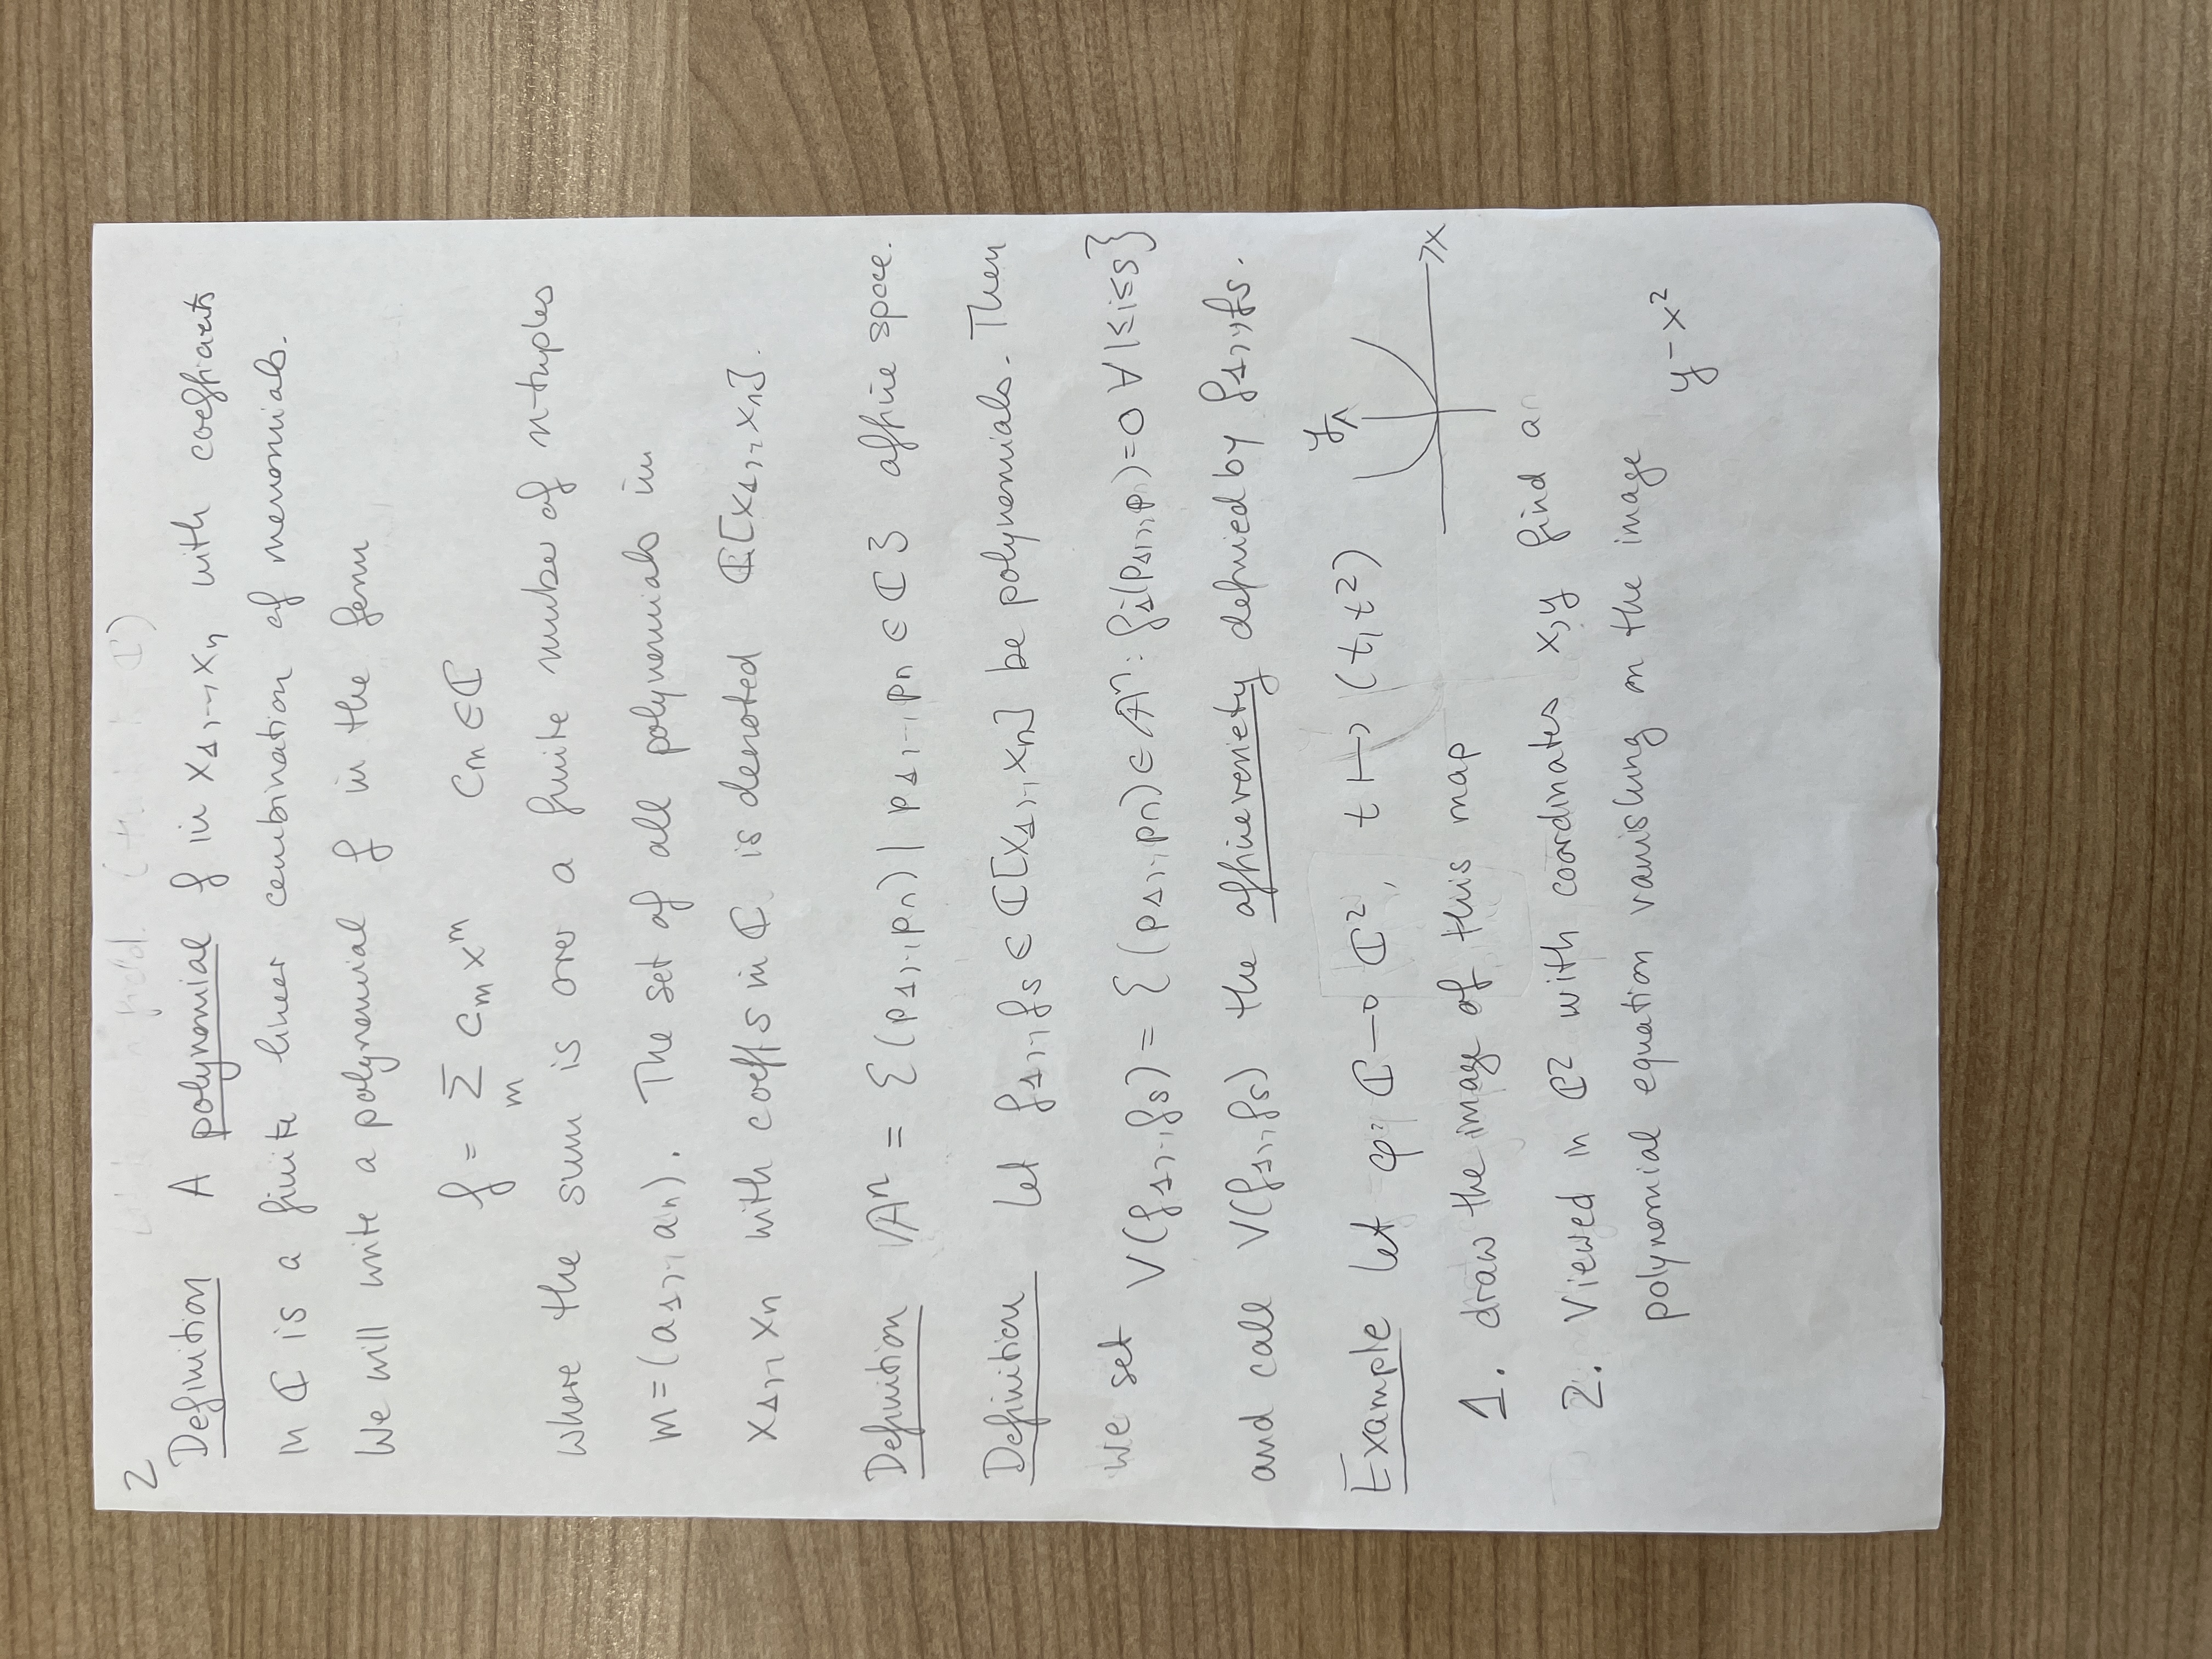 2
field.
Definition A polynomial f in x₁,..,xₙ with coefficients
in ℂ is a finite linear combination of monomials.
We will write a polynomial f in the form
f = Σ_m c_m x^m c_m ∈ ℂ
where the sum is over a finite number of n-tuples
m = (a₁,.., aₙ). The set of all polynomials in
x₁,.., xₙ with coeffs in ℂ is denoted ℂ[x₁,..,xₙ].
Definition 𝔸ⁿ = {(p₁,..,pₙ) | p₁,..,pₙ ∈ ℂ} affine space.
Definition Let f₁,..,fₛ ∈ ℂ[x₁,..,xₙ] be polynomials. Then
we set V(f₁,..,fₛ) = {(p₁,..,pₙ) ∈ 𝔸ⁿ : fᵢ(p₁,..,p)=0 ∀ 1≤i≤s}
and call V(f₁,..,fₛ) the affine variety defined by f₁,..,fₛ.
Example Let φ: ℂ → ℂ², t ↦ (t,t²)
y
x
1. draw the image of this map
2. Viewed in ℂ² with coordinates x,y find an
polynomial equation vanishing on the image
y - x²